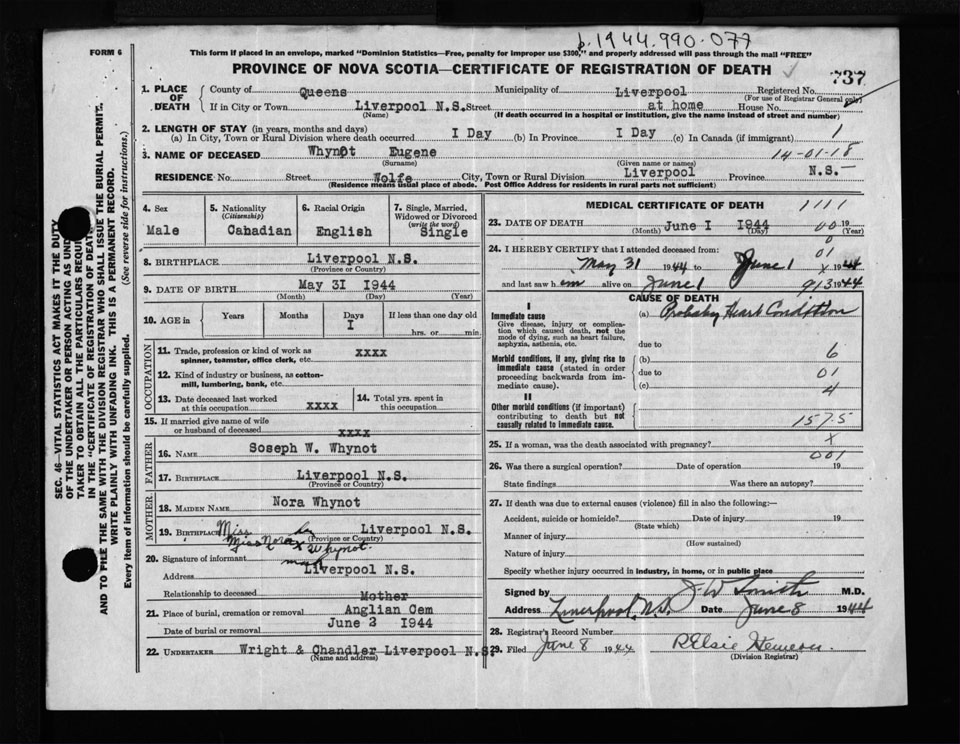 b.1944.990.077
FORM 6
This form if placed in an envelope, marked "Dominion Statistics—Free, penalty for improper use $300," and properly addressed will pass through the mail "FREE"
PROVINCE OF NOVA SCOTIA—CERTIFICATE OF REGISTRATION OF DEATH
737
1. PLACE OF DEATH
County of Queens Municipality of Liverpool Registered No.
(For use of Registrar General only)
If in City or Town Liverpool N.S. Street at home House No.
(Name) (If death occurred in a hospital or institution, give the name instead of street and number)
2. LENGTH OF STAY (in years, months and days)
(a) In City, Town or Rural Division where death occurred I Day (b) In Province I Day (c) In Canada (if immigrant) 1
3. NAME OF DECEASED Whynot Eugene 14-01-18
(Surname) (Given name or names)
RESIDENCE No. Street Wolfe City, Town or Rural Division Liverpool Province N.S.-
(Residence means usual place of abode. Post Office Address for residents in rural parts not sufficient)
SEC. 46—VITAL STATISTICS ACT MAKES IT THE DUTY
OF THE UNDERTAKER OR PERSON ACTING AS UNDER
TAKER TO OBTAIN ALL THE PARTICULARS REQUIR
IN THE "CERTIFICATE OF REGISTRATION OF DEATH
AND TO FILE THE SAME WITH THE DIVISION REGISTRAR WHO SHALL ISSUE THE BURIAL PERMIT.
WRITE PLAINLY WITH UNFADING INK. THIS IS A PERMANENT RECORD.
Every item of information should be carefully supplied. (See reverse side for instructions.)
4. Sex
Male
5. Nationality
(Citizenship)
Cahadian
6. Racial Origin
English
7. Single, Married,
Widowed or Divorced
(write the word)
Single
8. BIRTHPLACE Liverpool N.S.
(Province or Country)
9. DATE OF BIRTH May 3I 1944
(Month) (Day) (Year)
10. AGE in
Years
Months
Days
I
If less than one day old
hrs. or min.
OCCUPATION
11. Trade, profession or kind of work as
spinner, teamster, office clerk, etc. xxxx
12. Kind of industry or business, as cotton-
mill, lumbering, bank, etc.
13. Date deceased last worked
at this occupation xxxx
14. Total yrs. spent in
this occupation
15. If married give name of wife
or husband of deceased xxxx
FATHER
16. NAME Soseph W. Whynot
17. BIRTHPLACE Liverpool N.S.
(Province or Country)
MOTHER
18. MAIDEN NAME Nora Whynot
19. BIRTHPLACE Liverpool N.S.
(Province or Country)
Miss her
Miss Nora x Whynot.
20. Signature of informant mark
Address Liverpool N.S.
Relationship to deceased Mother
21. Place of burial, cremation or removal Anglian Cem
Date of burial or removal June 2 1944
22. UNDERTAKER Wright & Chandler Liverpool N.S.
(Name and address)
MEDICAL CERTIFICATE OF DEATH 1111
23. DATE OF DEATH June I 1944 00 19
(Month) (Day) (Year)
0
24. I HEREBY CERTIFY that I attended deceased from: 01
May 31 1944 to June 1 x 1944
and last saw h im alive on June 1 913 1944
CAUSE OF DEATH
I
Immediate cause
Give disease, injury or complica-
tion which caused death, not the
mode of dying, such as heart failure,
asphyxia, asthenia, etc.
(a) Probably Heart Condition
due to
Morbid conditions, if any, giving rise to
immediate cause (stated in order
proceeding backwards from im-
mediate cause).
(b) 6
due to 01
(c) 4
II
Other morbid conditions (if important)
contributing to death but not
causally related to immediate cause.
157.5
25. If a woman, was the death associated with pregnancy? x
001
26. Was there a surgical operation? Date of operation 19
State findings Was there an autopsy?
27. If death was due to external causes (violence) fill in also the following:—
Accident, suicide or homicide? Date of injury 19
(State which)
Manner of injury
(How sustained)
Nature of injury
Specify whether injury occurred in industry, in home, or in public place
Signed by J W Smith M.D.
Address Liverpool, N.S. Date June 8 1944
28. Registrar's Record Number
29. Filed June 8 1944 R Elsie
(Division Registrar)